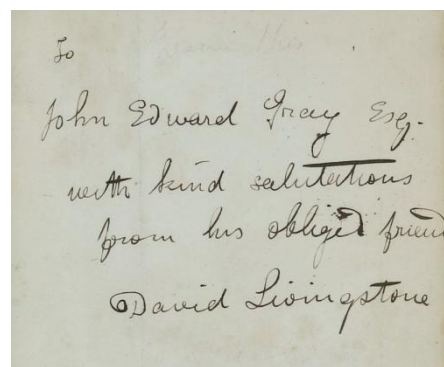 To
John Edward Gray Esq.
with kind salutations
from his obliged friend
David Livingstone